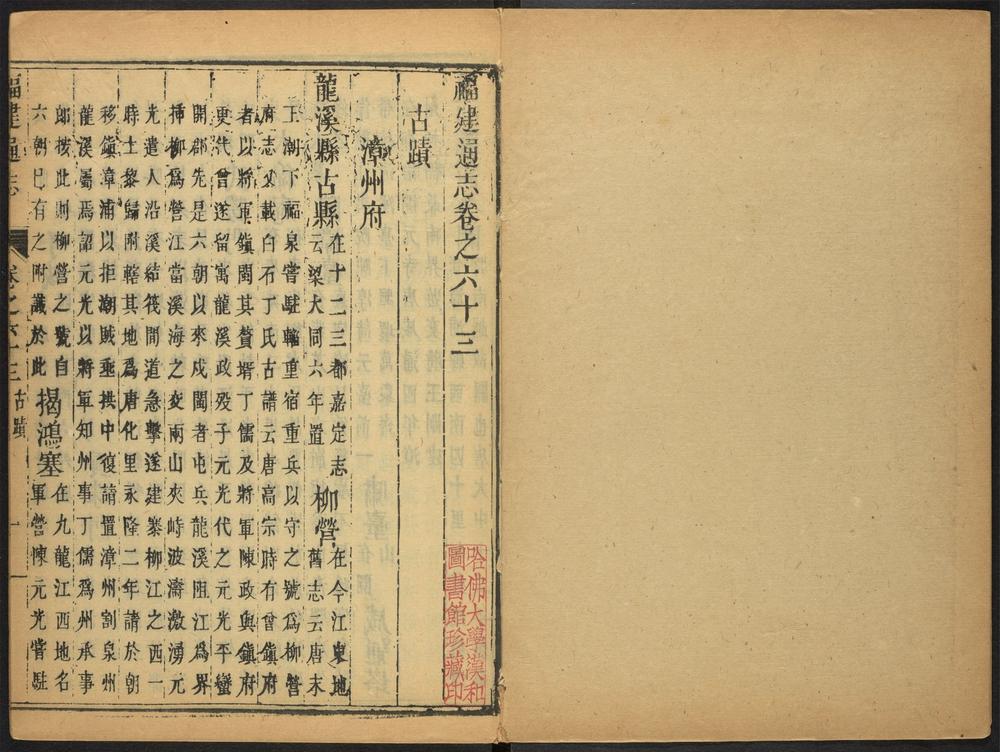 福建通志卷之六十三
哈佛大學漢和
圖書館珍藏印
古蹟
漳州府
龍溪縣古縣
在十二三都嘉定志
云梁大同六年置
柳營
在今江東地
舊志云唐末
王潮下福泉嘗駐輜重宿重兵以守之號為柳營
府志又載白石丁氏古譜云唐高宗時有曾鎮府
者以將軍鎮閩其贅壻丁儒及將軍陳政與鎮府
更代曾遂留寓龍溪政歿子元光代之元光平蠻
開郡先是六朝以來戍閩者屯兵龍溪阻江爲界
插柳爲營江當溪海之交兩山夾峙波濤激湧元
光遣人沿溪結筏間道急擊遂建寨柳江之西一
時土黎歸附轄其地爲唐化里永隆二年請於朝
移鎮漳浦以拒潮賊垂拱中復請置漳州割泉州
龍溪屬焉詔元光以將軍知州事丁儒爲州承事
郎按此則柳營之號自
六朝已有之附識於此
揭鴻塞
在九龍江西地名
軍營陳元光嘗駐
福建通志
卷之六十三古蹟
一